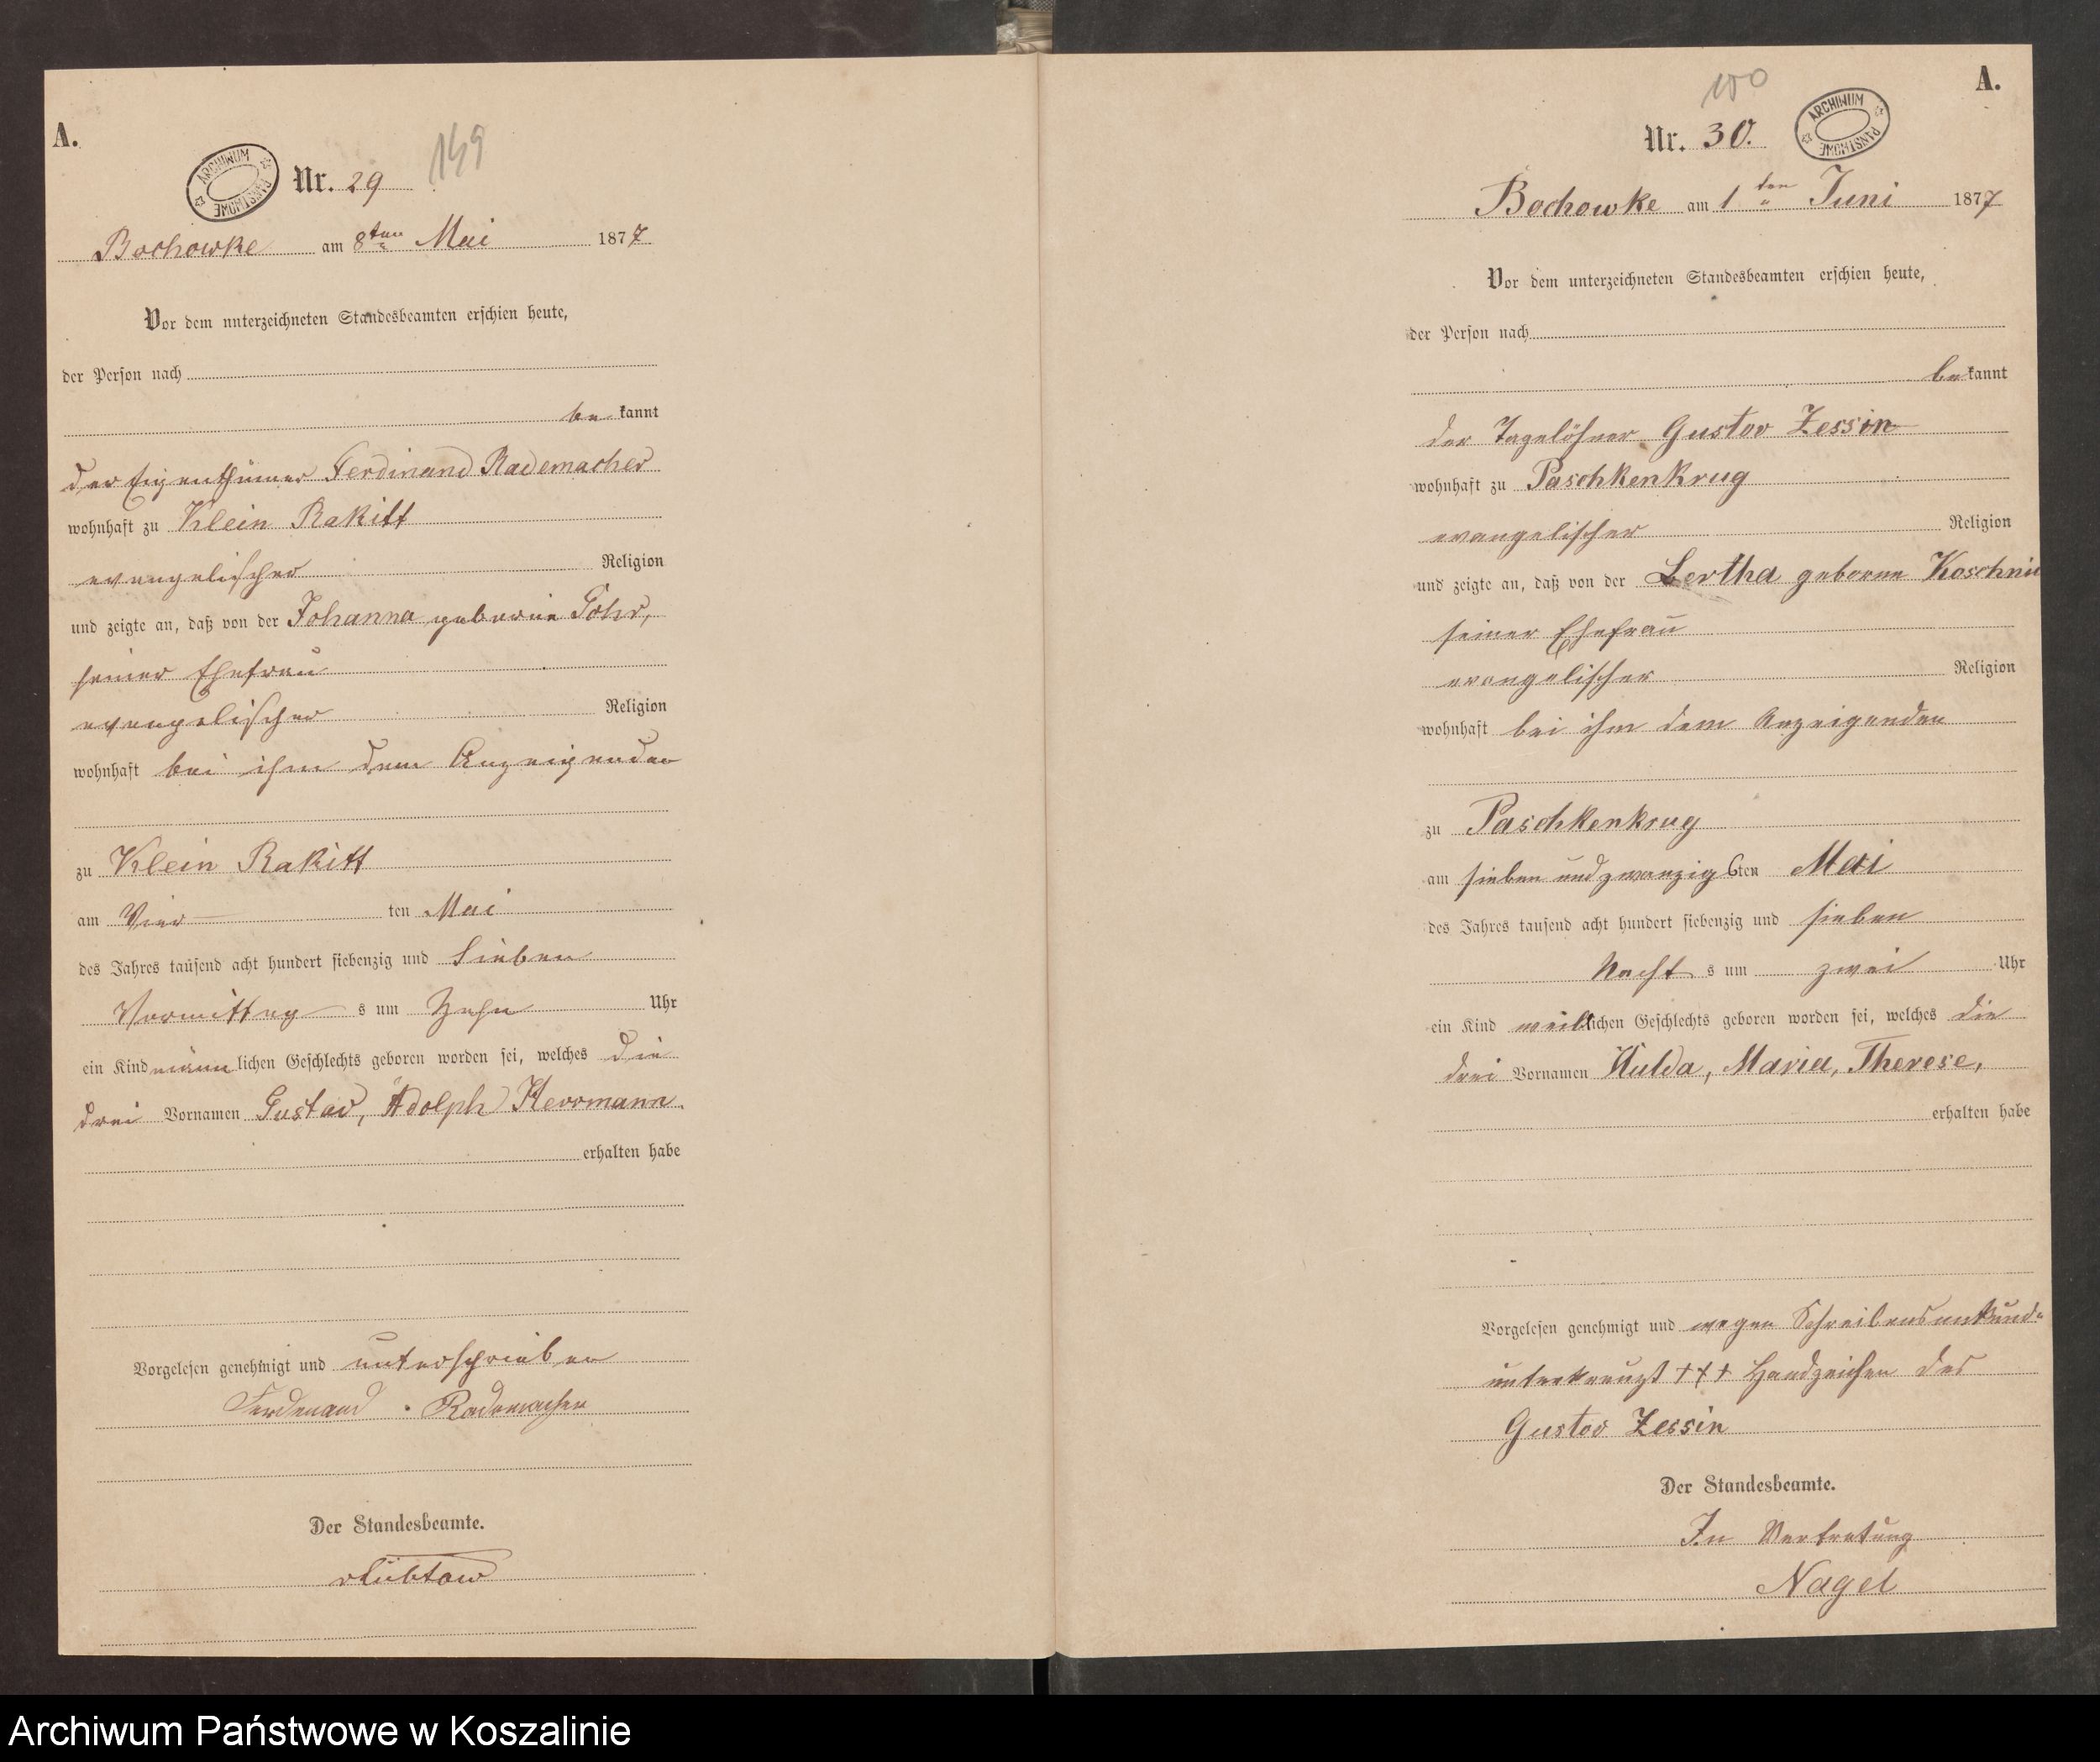 A.
149
ARCHIWUM PAŃSTWOWE
Nr. 29
Bochowke am 8ten Mai 1877
Vor dem unterzeichneten Standesbeamten erschien heute,
der Person nach
be kannt
der Eigenthümer Ferdinand Rademacher
wohnhaft zu Klein Rakitt
evangelischer Religion
und zeigte an, daß von der Johanna geborne Gohr,
seiner Ehefrau
evangelischer Religion
wohnhaft bei ihm dem Anzeigenden
zu Klein Rakitt
am Vier ten Mai
des Jahres tausend acht hundert siebenzig und Sieben
Vormittag s um Zehn Uhr
ein Kind männ lichen Geschlechts geboren worden sei, welches die
drei Vornamen Gustav, Adolph Herrmann
erhalten habe
Vorgelesen genehmigt und unterschrieben
Ferdenand Rademacher
Der Standesbeamte.
vLübtow
A.
150
ARCHIWUM PAŃSTWOWE
Nr. 30.
Bochowke am 1ten Juni 1877
Vor dem unterzeichneten Standesbeamten erschien heute,
der Person nach
be kannt
der Tagelöhner Gustav Zessin
wohnhaft zu Paschkenkrug
evangelischer Religion
und zeigte an, daß von der Bertha geborne
seiner Ehefrau
evangelischer Religion
wohnhaft bei ihm dem Anzeigenden
zu Paschkenkrug
am sieben und zwanzigsten Mai
des Jahres tausend acht hundert siebenzig und sieben
Nacht s um zwei Uhr
ein Kind weiblichen Geschlechts geboren worden sei, welches die
drei Vornamen Hulda, Maria, Therese,
erhalten habe
Vorgelesen genehmigt und wegen Schreibensunkunde
unterkreuzt +++ Handzeichen des
Gustav Zessin
Der Standesbeamte.
In Vertretung
Nagel
Archiwum Państwowe w Koszalinie